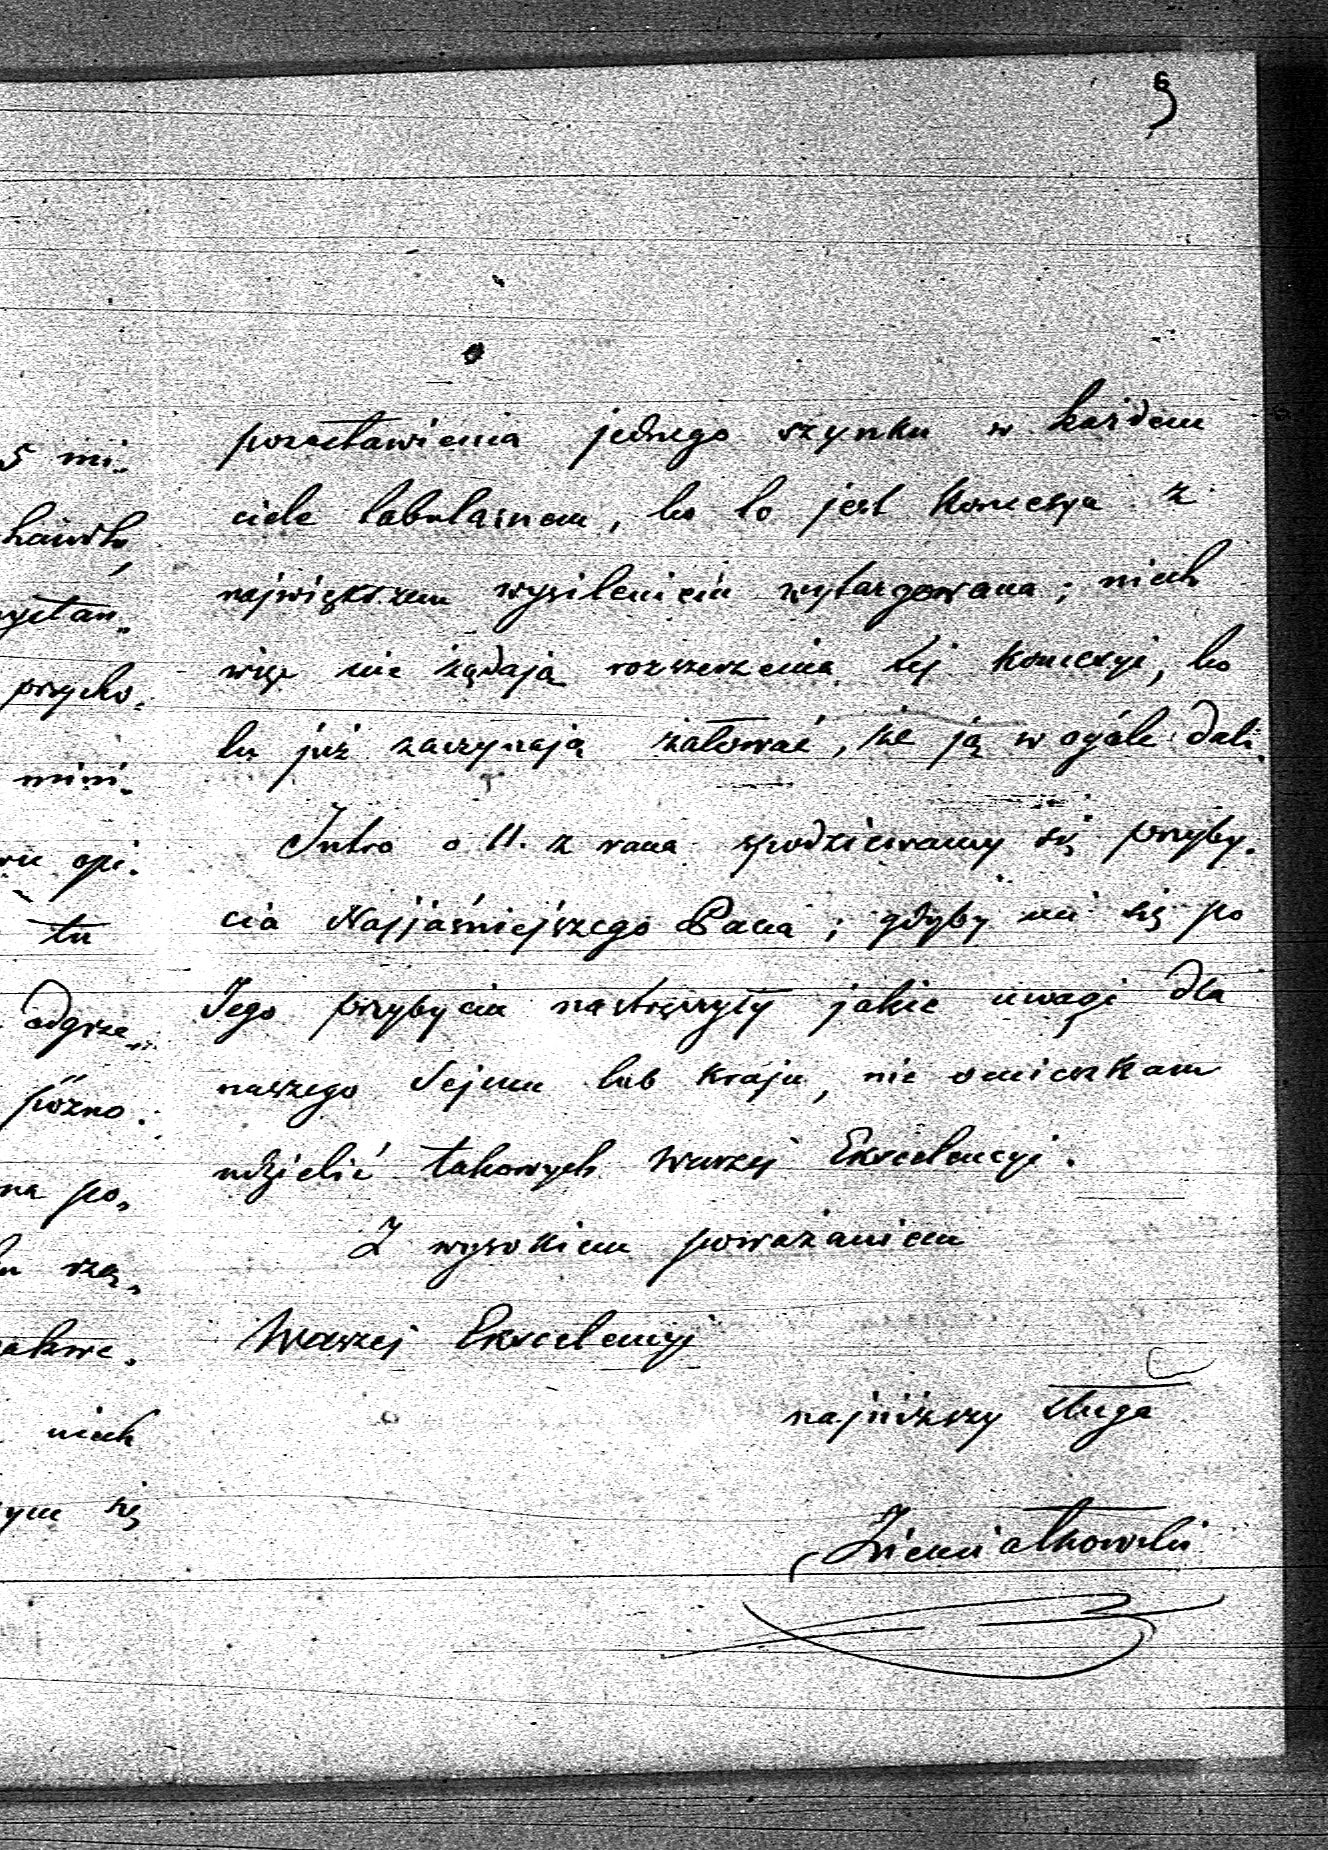 5 mi„
hawdlu,
ystan„
przycho„
mini„
ru opi„
tu
odgrze„
późno„
na po„
rzą„
niech
ym się
9
pozostawienia jednego szynku w każdem
ciele tabularnem, bo to jest koncesya z
największem wysileniem wytargowana; niech
więc nie żądają rozszerzenia tej koncesyi, bo
tu już zaczynają żałować, że ją w ogóle dali.
Jutro o 11. z rana spodziewamy się przyby„
cia Najjaśniejszego Pana; gdyby mi się po
Jego przybyciu nastręczyły jakie uwagi dla
naszego Sejmu lub kraju, nie omieszkam
udzielić takowych Waszej Ekscelencyi.
Z wysokiem poważaniem
Waszej Ekscelencyi
najniższy sługa
Ziemiałkowski